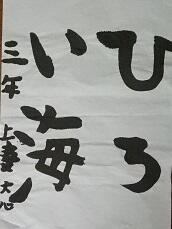 ひろ
い海
三年 上妻大心